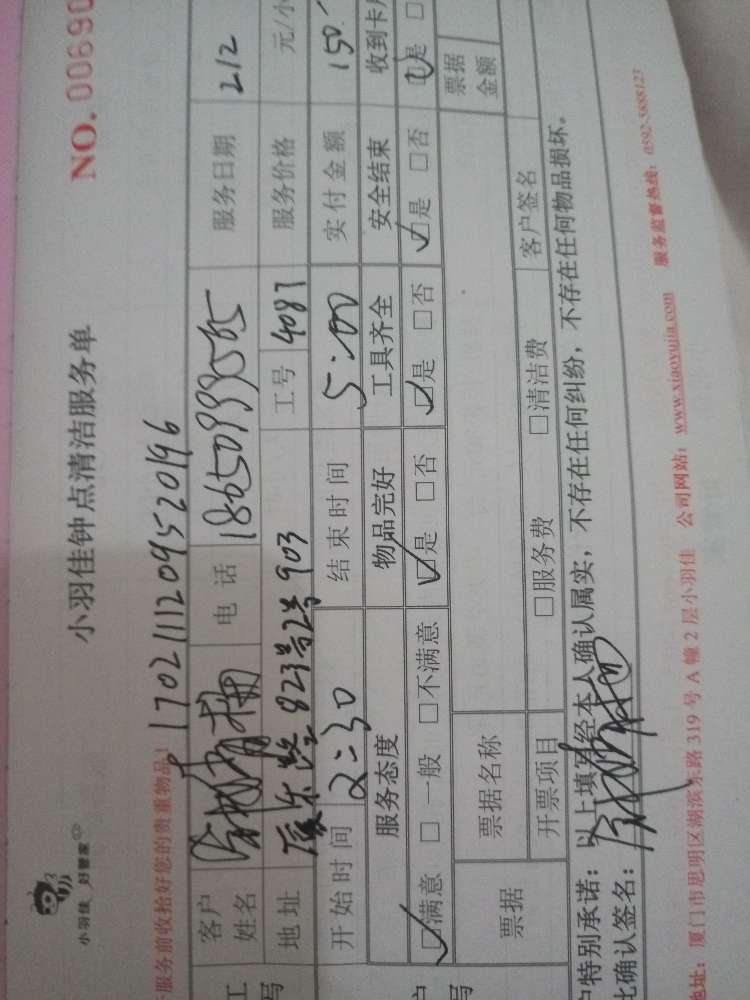 小羽佳 好管家
小羽佳钟点清洁服务单
NO. 00690
服务前收拾好您的贵重物品! 1702111209520196
客户姓名 电话 18650933505 服务日期 212
地址 823号2号903 工号 4087 服务价格 元/小
开始时间 2:30 结束时间 5:00 实付金额 150
服务态度 物品完好 工具齐全 安全结束 收到卡片
☑满意 □一般 □不满意 ☑是 □否 ☑是 □否 ☑是 □否 ☑是 □
票据 票据名称 票据金额
开票项目 □服务费 □清洁费 客户签名
户特别承诺: 以上填写经本人确认属实, 不存在任何纠纷, 不存在任何物品损坏。
此确认签名:
地址: 厦门市思明区湖滨东路 319 号 A 幢 2 层小羽佳 公司网站: www.xiaoyujia.com 服务监督热线: 0592-5888123